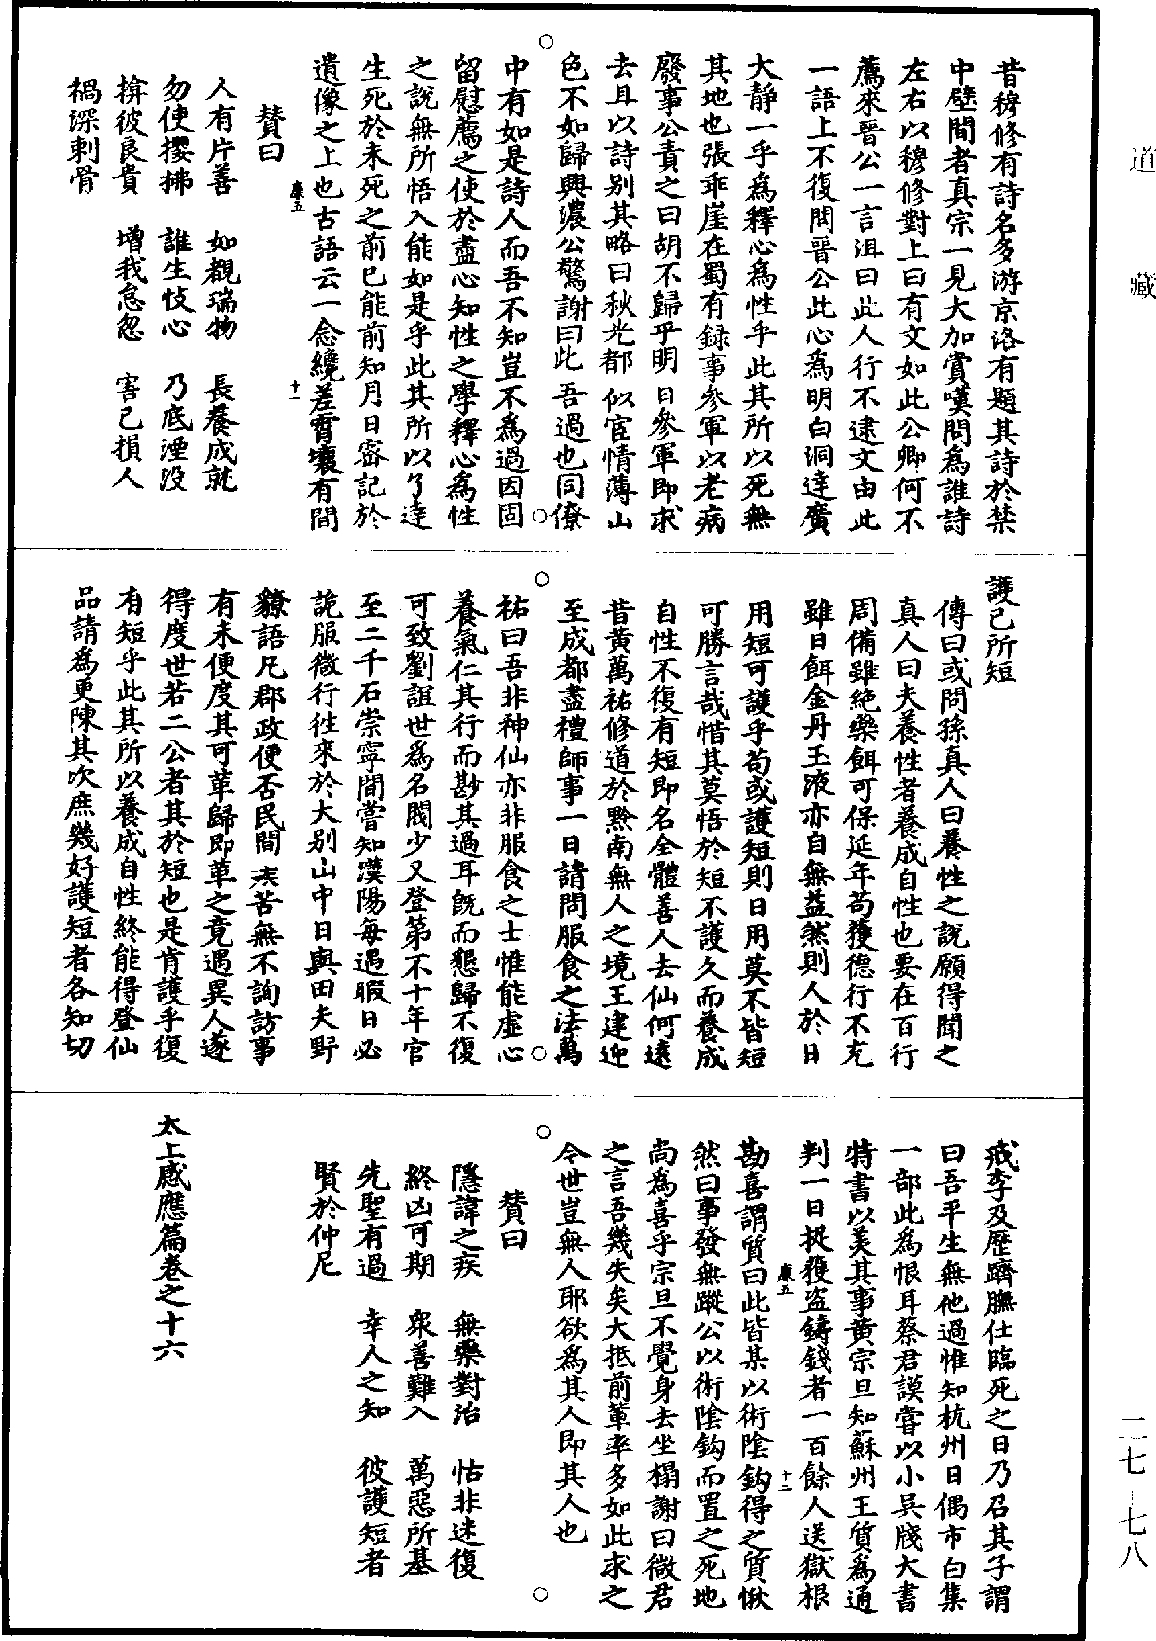 道藏
昔穆修有詩名多游京洛有題其詩於禁
中壁間者真宗一見大加賞嘆問為誰詩
左右以穆修對上曰有文如此公卿何不
薦來晉公一言沮曰此人行不逮文由此
一語上不復問晉公此心為明白洞達廣
大靜一乎為釋心為性乎此其所以死無
其地也張乖崖在蜀有録事參軍以老病
廢事公責之曰胡不歸乎明日參軍即求
去且以詩别其略曰秋光都似宦情薄山
色不如歸興濃公驚謝曰此吾過也同僚
中有如是詩人而吾不知豈不為過因固
留慰薦之使於盡心知性之學釋心為性
之說無所悟入能如是乎此其所以了達
生死於未死之前已能前知月日密記於
遺像之上也古語云一念纔差霄壤有間
廉五
十一
贊曰
人有片善　如覩瑞物　長養成就
勿使攖拂　誰生忮心　乃底湮没
揜彼良貴　增我怠忽　害己損人
禍深刺骨
護己所短
傳曰或問孫真人曰養性之說願得聞之
真人曰夫養性者養成自性也要在百行
周備雖絶藥餌可保延年苟獲德行不充
雖日餌金丹玉液亦自無益然則人於日
用短可護乎苟或護短則日用莫不皆短
可勝言哉惜其莫悟於短不護久而養成
自性不復有短即名全體善人去仙何遠
昔黃萬祐修道於黔南無人之境王建迎
至成都盡禮師事一日請問服食之法萬
祐曰吾非神仙亦非服食之士惟能虛心
養氣仁其行而尠其過耳旣而懇歸不復
可致劉誼世為名閥少又登第不十年官
至二千石崇寧間嘗知漢陽每遇暇日必
詭服微行徃來於大别山中日與田夫野
獠語凡郡政便否民間疾苦無不詢訪事
有未便度其可革歸即革之竟遇異人遂
得度世若二公者其於短也是肯護乎復
有短乎此其所以養成自性終能得登仙
品請為更陳其次庶幾好護短者各知切
戒李及歷躋膴仕臨死之日乃召其子謂
曰吾平生無他過惟知杭州日偶市白集
一部此為恨耳蔡君謨嘗以小吳牋大書
特書以美其事黃宗旦知蘇州王質為通
判一日捉獲盜鑄錢者一百餘人送獄根
廉五
十二
勘喜謂質曰此皆某以術陰鈎得之質愀
然曰事發無蹤公以術陰鈎而置之死地
尚為喜乎宗旦不覺身去坐榻謝曰微君
之言吾幾失矣大抵前輩率多如此求之
今世豈無人耶欲為其人即其人也
贊曰
隱諱之疾　無藥對治　怙非迷復
終凶可期　衆善難入　萬惡所基
先聖有過　幸人之知　彼護短者
賢於仲尼
太上感應篇卷之十六
二七—七八